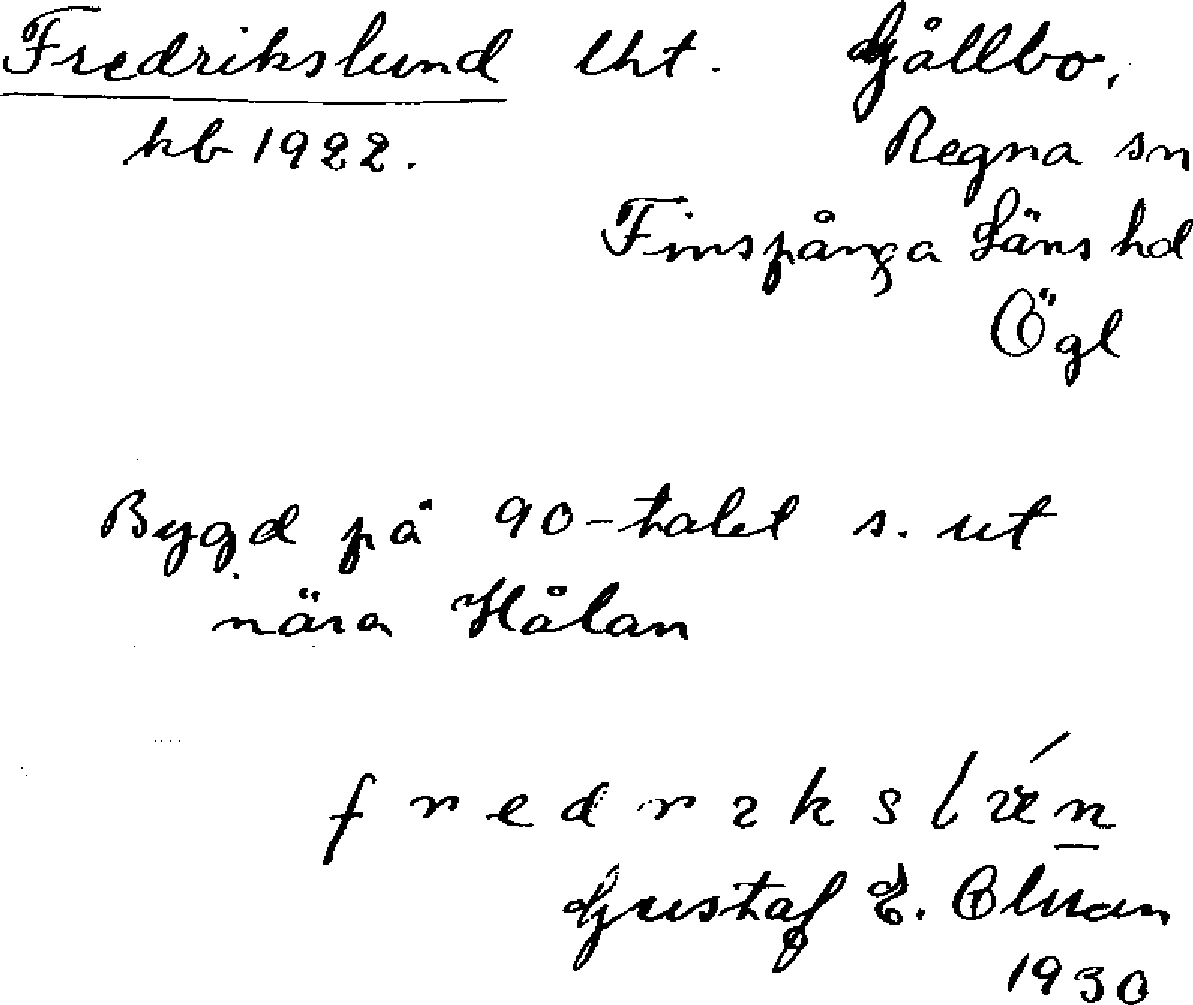 Fredrikslund lht. Gållbo,
kb 1922. Regna sn
Finspånga Läns hd
Ögl
Bygd på 90-talet s. ut
nära Hålan
fredrikslún
Gustaf E. Olman
1930